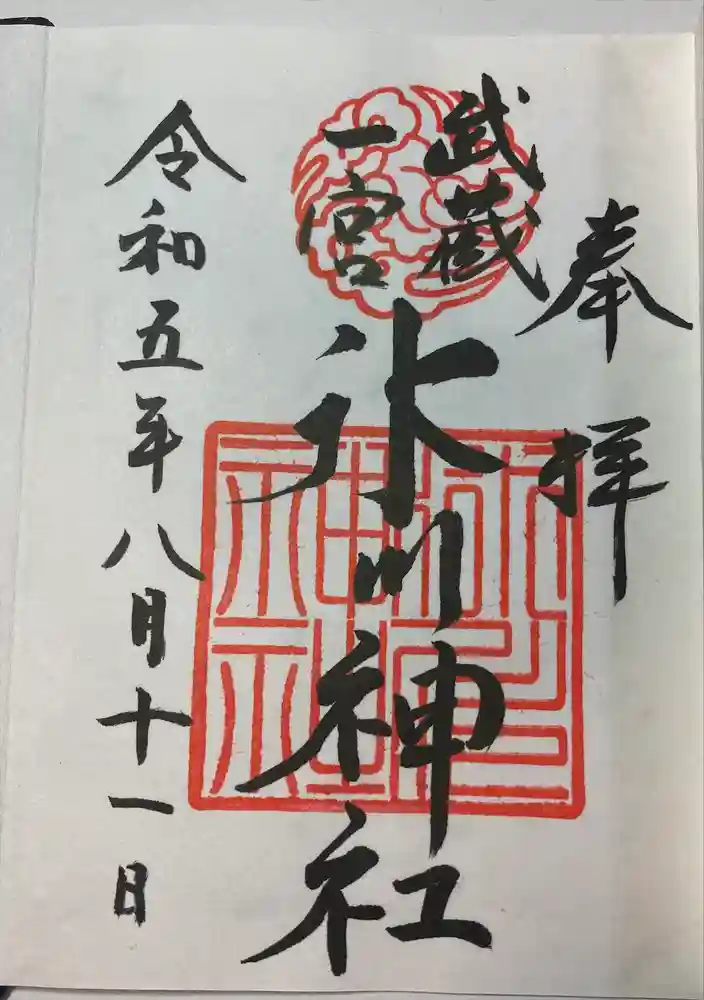 奉拝
武蔵
一宮
氷川神社
令和五年八月十一日